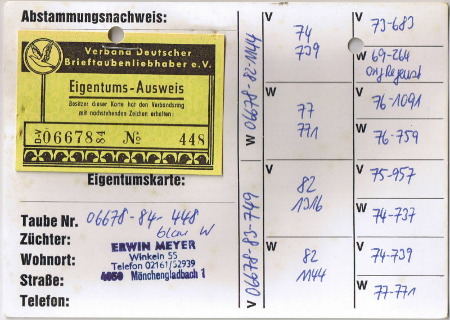 Abstammungsnachweis:
Verband Deutscher
Brieftaubenliebhaber e.V.
Eigentums-Ausweis
Besitzer dieser Karte hat den Verbandsring
mit nachstehenden Zeichen erhalten:
D-V 06678 84 No 448
Eigentumskarte:
Taube Nr. 06678-84-448
blau W
Züchter:
Wohnort:
Straße:
Telefon:
ERWIN MEYER
Winkeln 55
Telefon 02161/52939
4050 Mönchengladbach 1
V 06678-83-749
W 06678-82-1144
V
74
739
W
77
771
V
82
1316
W
82
1144
V
73-683
W 69-264
V
76-1091
W
76-759
V
75-957
W
74-737
V
74-739
W
77-771